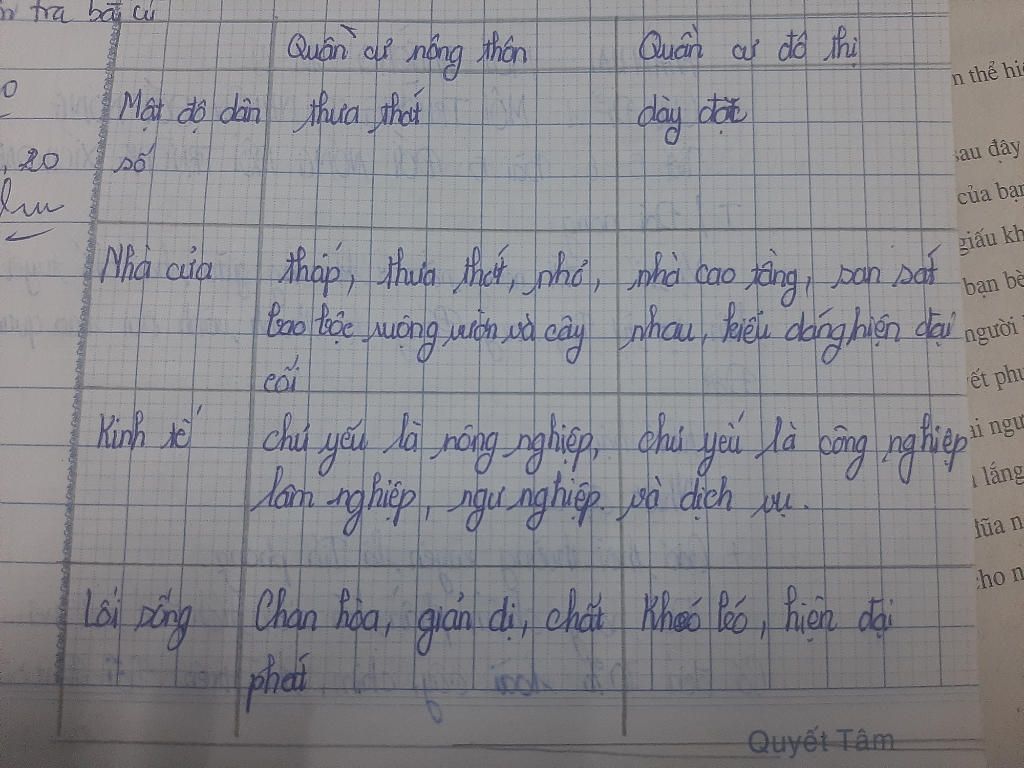 tra bài cũ
Quần cư nông thôn
Quần cư đô thị
Mật độ dân số
thưa thớt
dày đặc
20
Nhà cửa
thấp, thưa thớt, nhỏ,
bao bọc ruộng vườn và cây
cối
nhà cao tầng, san sát
nhau, kiểu dáng hiện đại
Kinh tế
chủ yếu là nông nghiệp,
lâm nghiệp, ngư nghiệp.
chủ yếu là công nghiệp
và dịch vụ.
Lối sống
Chan hòa, giản dị, chất
phát
Khéo léo, hiện đại
Quyết Tâm
n thể hiệ
sau đây
của bạn
giấu kh
bạn bè
người
ết phụ
ai ngu
lắng
lũa n
cho n